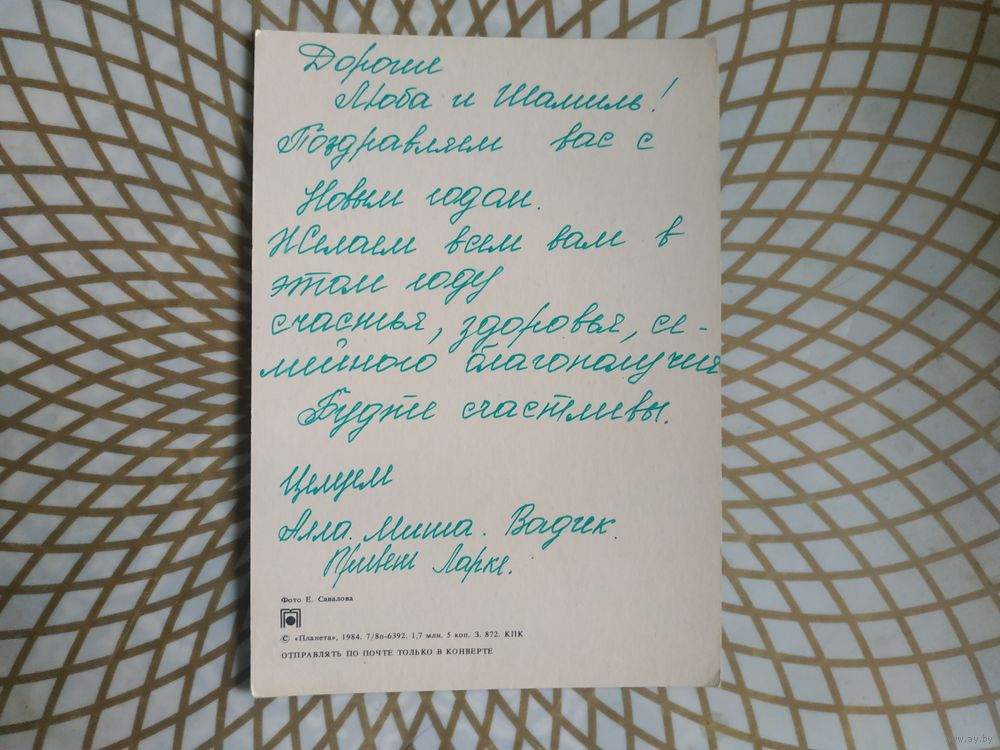 Дорогие
Люба и Шамиль!
Поздравляем вас с
Новым годом.
Желаем всем вам в
этом году
счастья, здоровья, се-
мейного благополучия
Будте счастливы.
Целуем
Алла. Миша. Вадик.
Привет Ларке.
Фото Е. Савалова
© «Планета», 1984. 7/8п-6392. 1,7 млн. 5 коп. З. 872. КПК
ОТПРАВЛЯТЬ ПО ПОЧТЕ ТОЛЬКО В КОНВЕРТЕ
www.ay.by